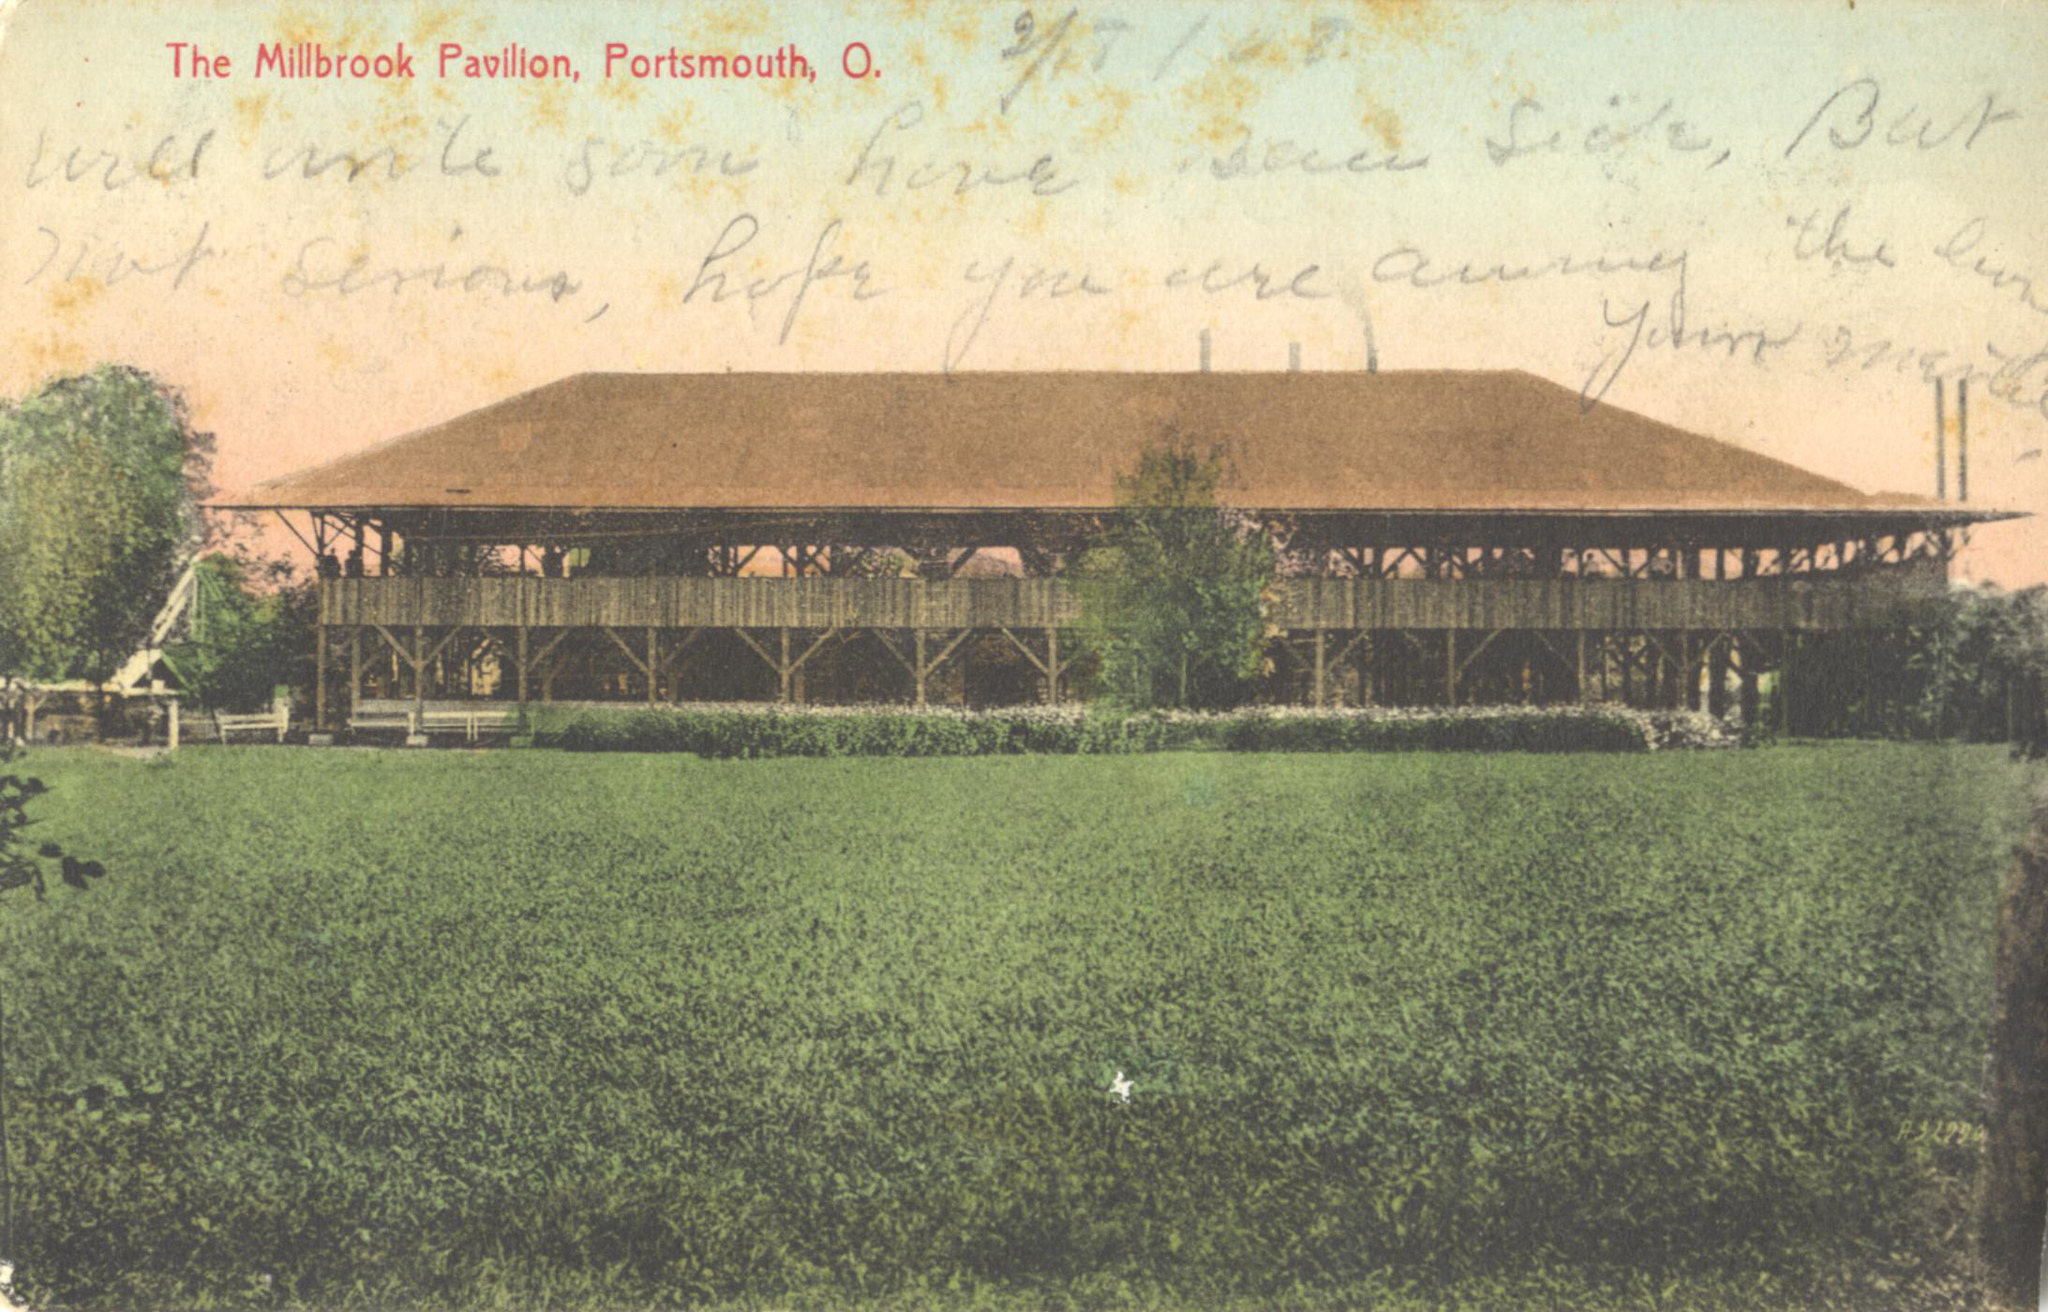 The Millbrook Pavilion, Portsmouth, O.
2/18/08
will write soon have been Sick, But
Not Serious, hope you are among the living
Yours